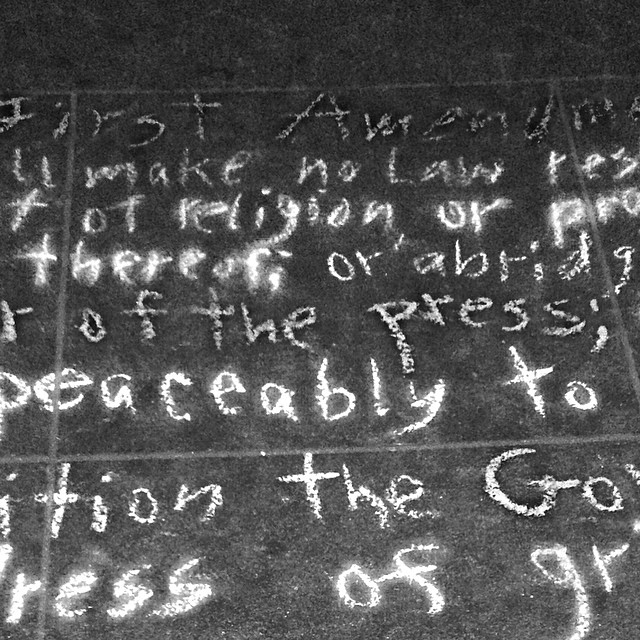 First Amendme
ll make no Law res
t of religion, or pro
thereof; or abridg
r of the press;
peaceably to
ition the Gov
ress of gr